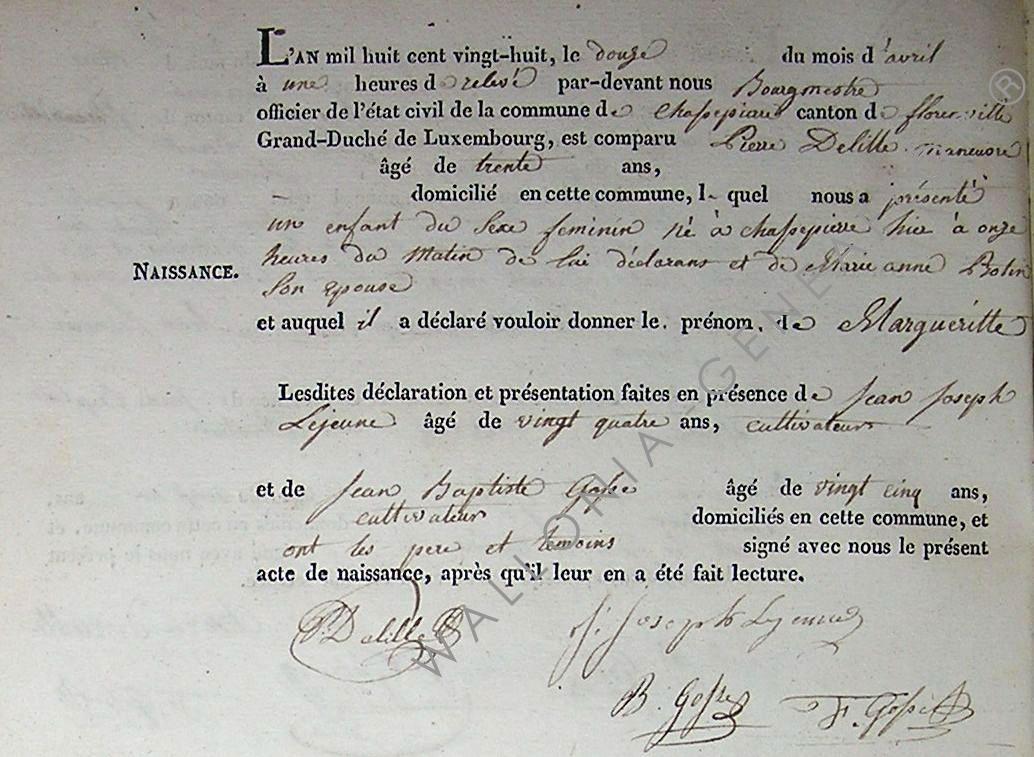 L'AN mil huit cent vingt-huit, le douze du mois d'avril
à une heures de relevé par-devant nous Bourgmestre
officier de l'état civil de la commune de chassepierre canton de florenville
Grand-Duché de Luxembourg, est comparu Pierre Delille manœuvre
âgé de trente ans,
domicilié en cette commune, l- quel nous a présenté
un enfant du sexe feminin né à chassepierre hier à onze
NAISSANCE. heures du Matin de lui déclarans et de Marie anne Botin
son epouse
et auquel il a déclaré vouloir donner le prénom de Margueritte
Lesdites déclaration et présentation faites en présence de Jean Joseph
Lejeune âgé de vingt quatre ans, cultivateur
et de Jean Baptiste Gosse âgé de vingt cinq ans,
cultivateur domiciliés en cette commune, et
ont les pere et temoins signé avec nous le présent
acte de naissance, après qu'il leur en a été fait lecture.
P. Delille J. Joseph Lejeune
B. Gosse F. Gosse
WALLONIA-GENE
®